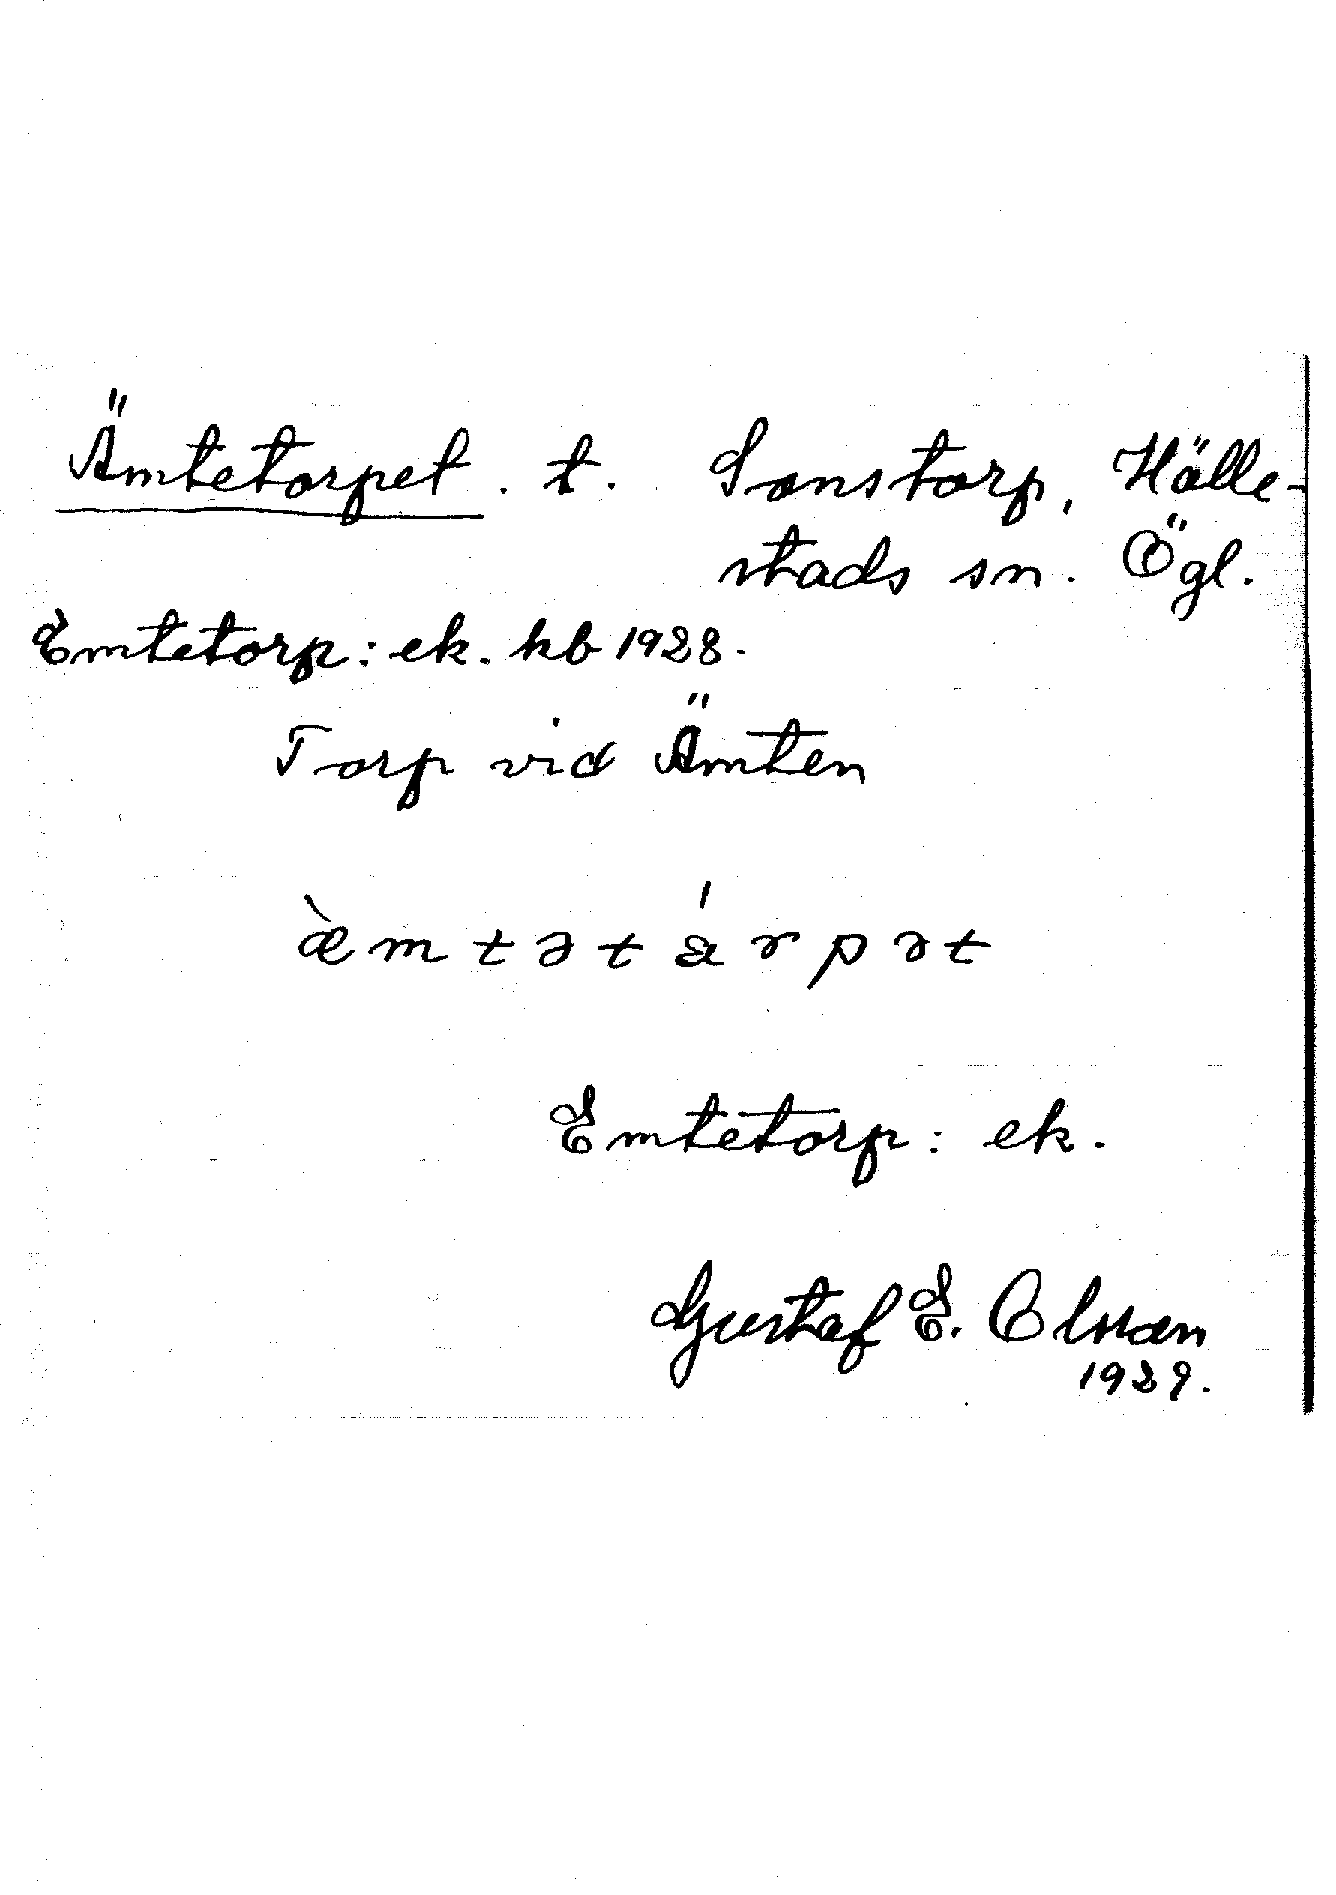 Ämtetorpet. t. Sonstorp, Hälle-
stads sn. Ögl.
Emtetorp: ek. hb 1928.
Torp vid Ämten
æ̀mtətárpət
Emtetorp: ek.
Gustaf E. Olsson
1929.